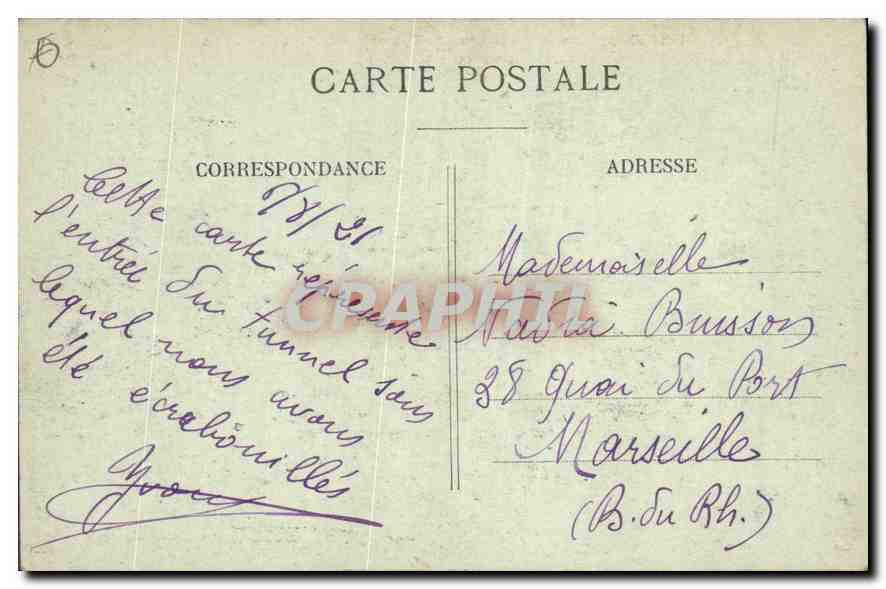 CARTE POSTALE
CORRESPONDANCE
ADRESSE
6/8/21
Cette carte représente
l'entrée du tunnel sous
lequel nous avons
été écrabouillés
Yvonne
Mademoiselle
Buisson
28 Quai du Port
Marseille
(B. du Rh.)
CPAPHIL